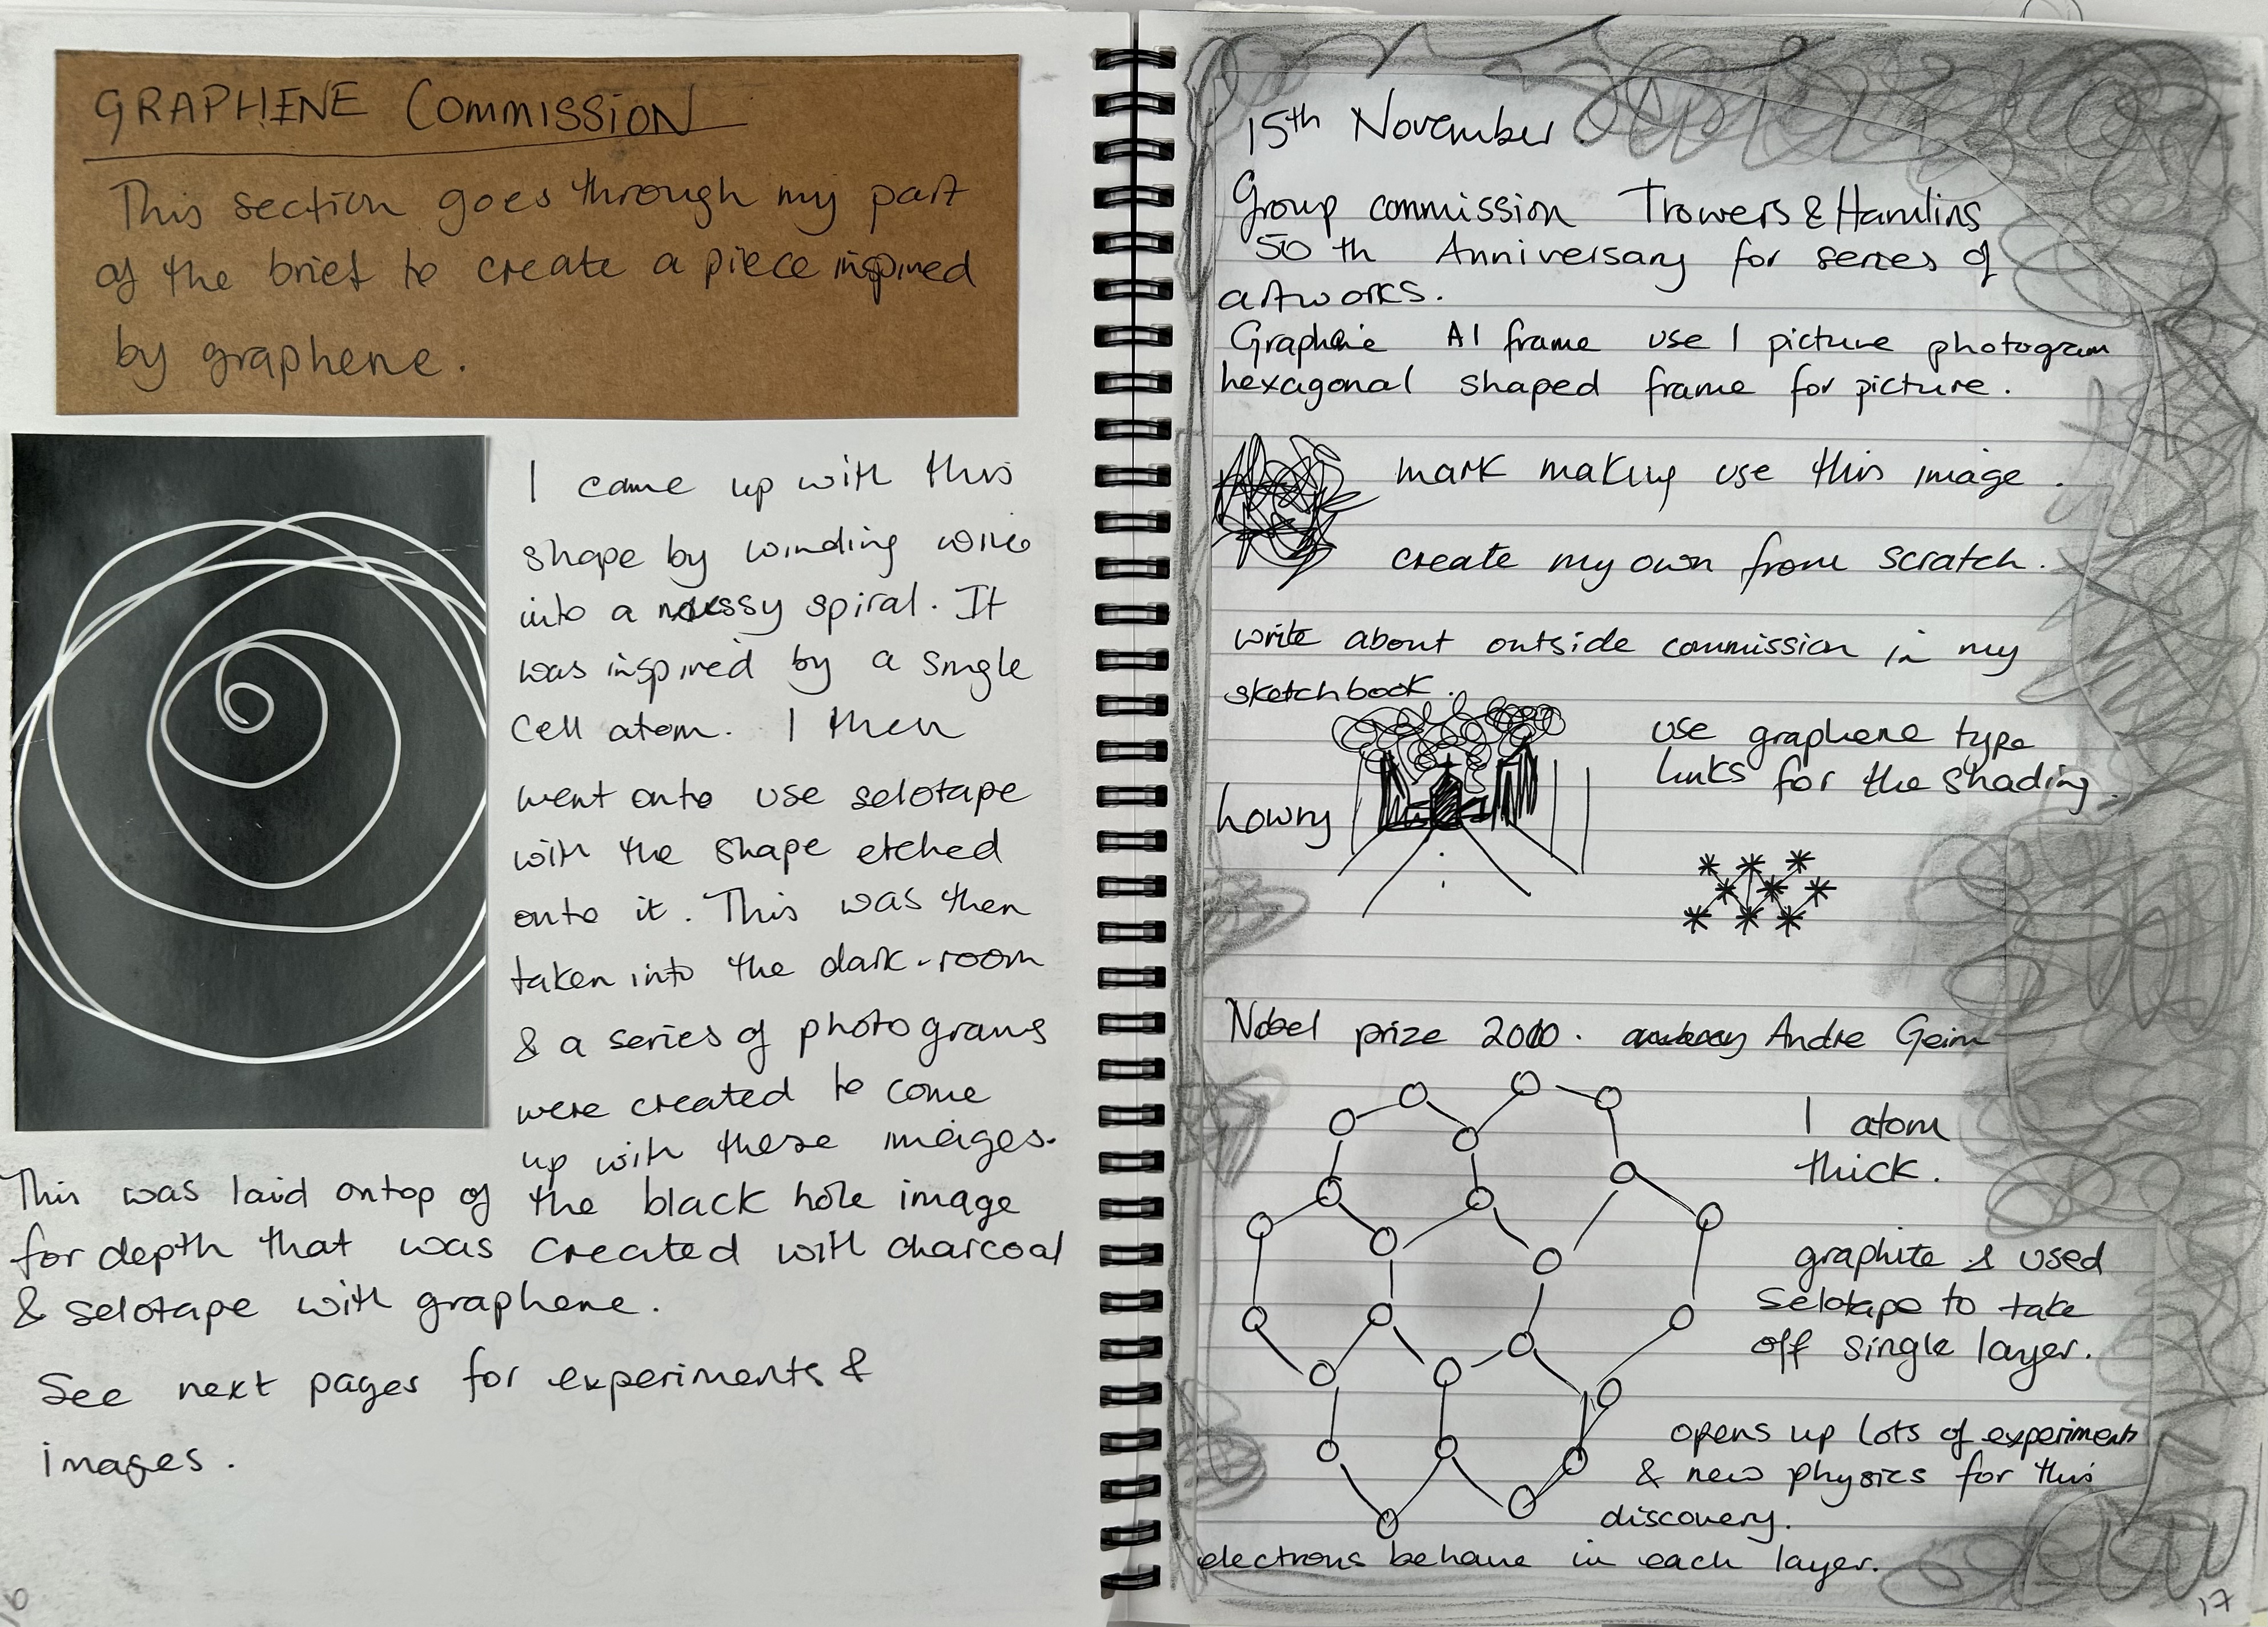 GRAPHENE COMMISSION
This section goes through my part
of the brief to create a piece inspired
by graphene.
I came up with this
shape by winding wire
into a messy spiral. It
was inspired by a single
cell atom. I then
went onto use selotape
with the shape etched
onto it. This was then
taken into the dark-room
& a series of photograms
were created to come
up with these images.
This was laid ontop of the black hole image
for depth that was created with charcoal
& selotape with graphene.
See next pages for experiments &
images.
16
15th November.
Group commission Trowers & Hamlins
50th Anniversary for series of
artworks.
Graphene A1 frame use 1 picture photogram
hexagonal shaped frame for picture.
mark making use this image.
create my own from scratch.
write about outside commission in my
sketchbook.
use graphene type
links for the shading.
Lowry
Nobel prize 2010. Andre Geim
1 atom
thick.
graphite & used
selotape to take
off single layer.
opens up lots of experiments
& new physics for this
discovery.
electrons behave in each layer.
17